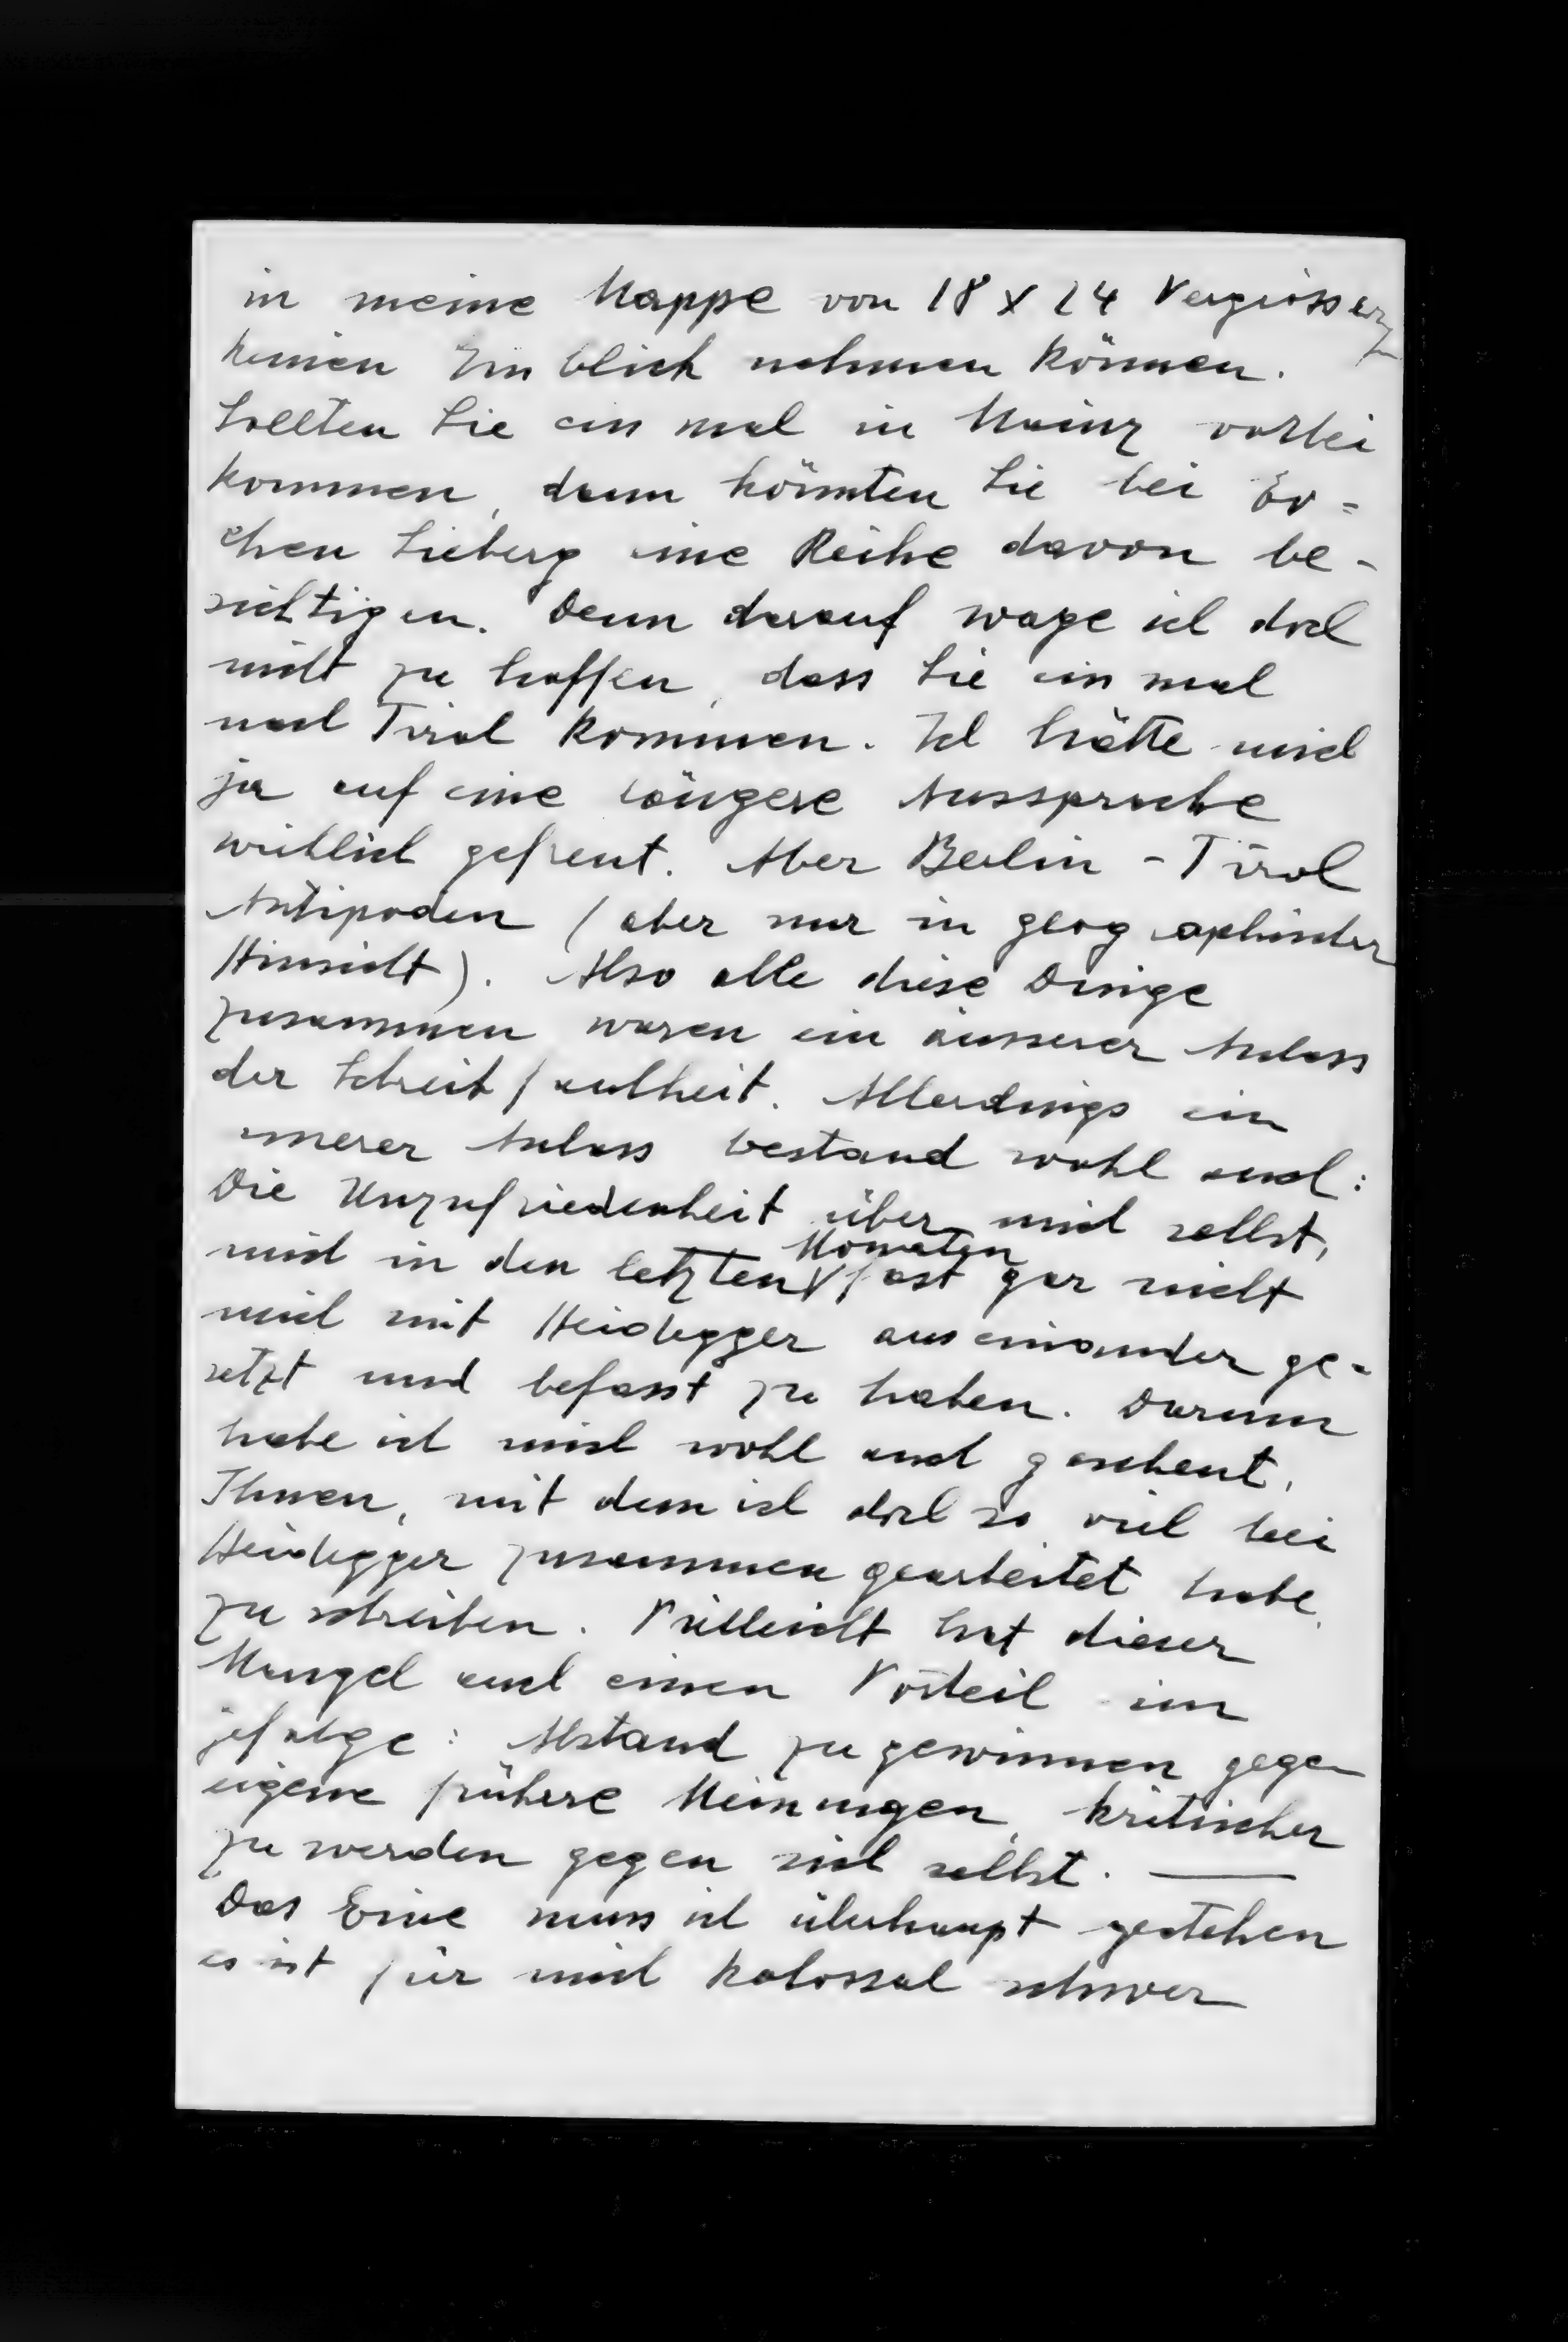 in meine Mappe von 18 x 24 Vergrösserungen
keinen Einblick nehmen können.
Sollten Sie einmal in Mainz vorbei
kommen, dann könnten Sie bei Ev=
chen Sieberg eine Reihe davon be-
sichtigen. Denn darauf wage ich doch
nicht zu hoffen, dass Sie einmal
nach Tirol kommen. Ich hätte mich
ja auf eine längere Aussprache
wirklich gefreut. Aber Berlin - Tirol
Antipoden (aber nur in geographischer
Hinsicht). Also alle diese Dinge
zusammen waren ein äusserer Anlass
der Schreibfaulheit. Allerdings ein
innerer Anlass bestand wohl auch:
Die Unzufriedenheit über mich selbst,
mich in den letzten Monaten fast gar nicht
mich mit Heidegger auseinander ge-
setzt und befasst zu haben. Darum
habe ich mich wohl auch gescheut,
Ihnen, mit dem ich doch so viel bei
Heidegger zusammen gearbeitet habe,
zu schreiben. Vielleicht hat dieser
Mangel auch einen Vorteil im
gefolge: Abstand zu gewinnen gegen
eigene frühere Meinungen, kritischer
zu werden gegen sich selbst. —
Das Eine muss ich überhaupt gestehen
es ist für mich kolossal schwer